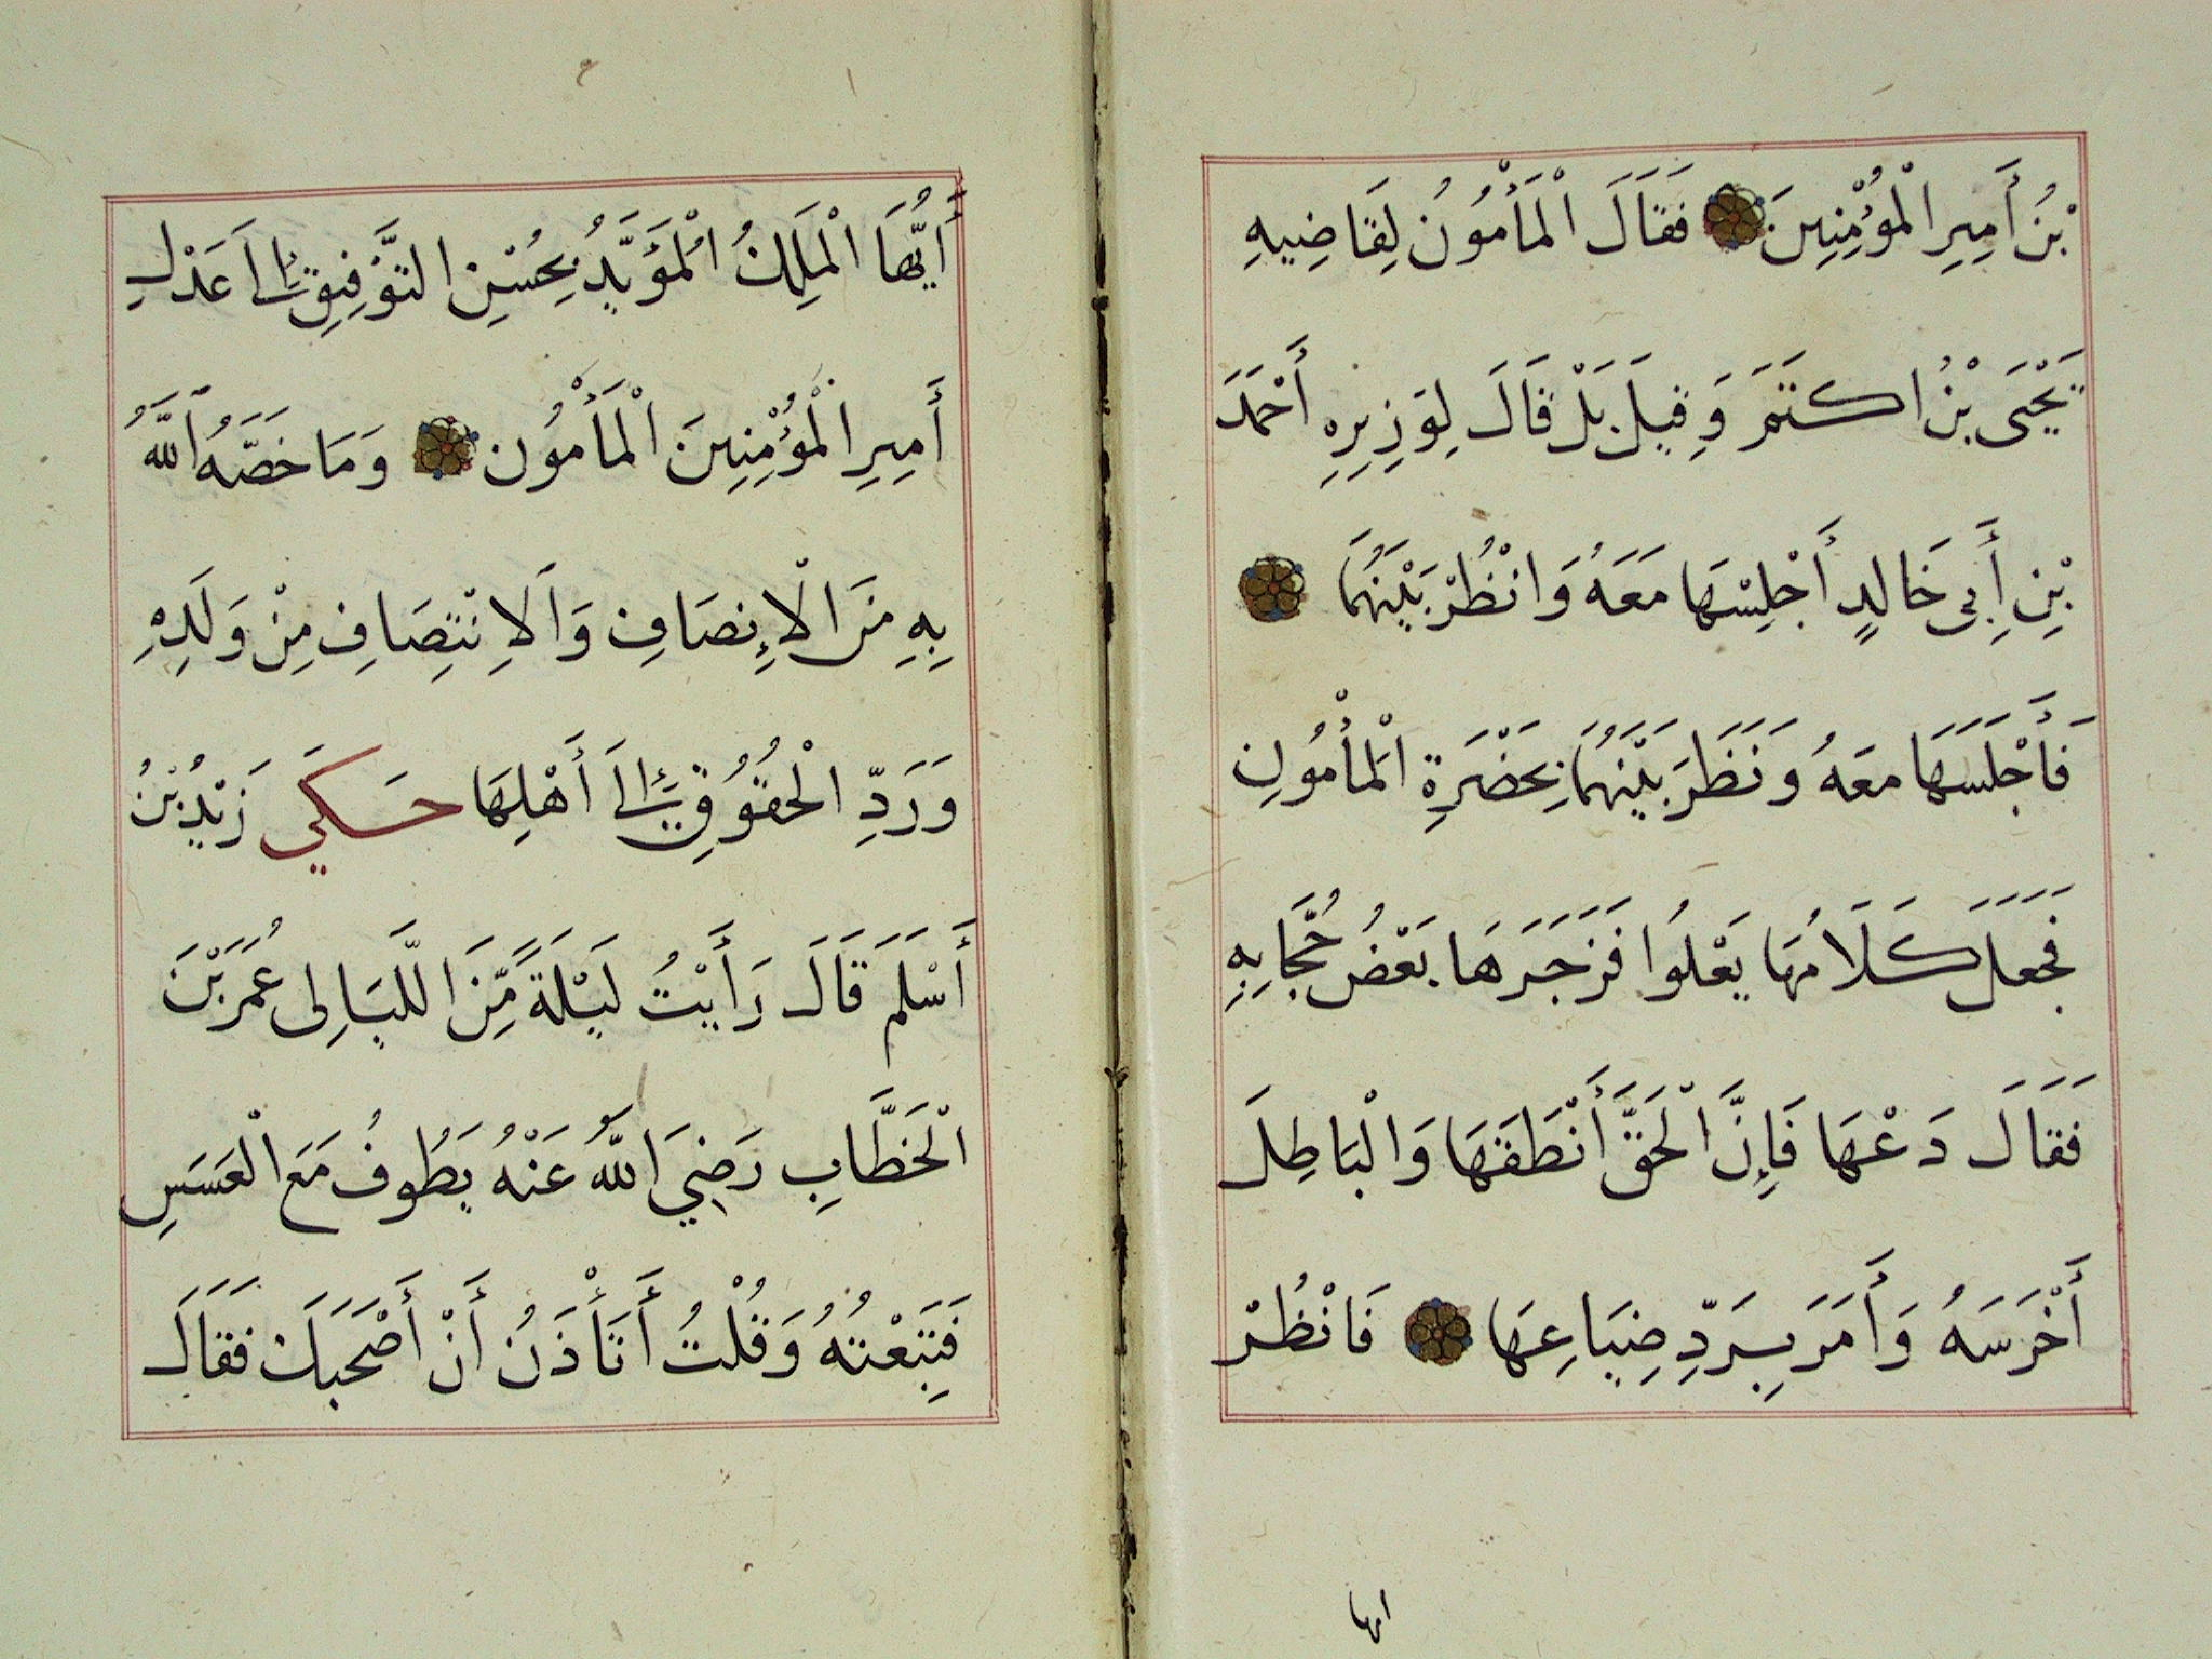 بْنُ أَمِيرِ الْمُؤْمِنِينَ فَقَالَ الْمَأْمُونُ لِقَاضِيهِ
يَحْيَى بْنُ اكتَمَ وَقِيلَ بَلْ قَالَ لِوَزِيرِهِ أَحْمَدَ
بْنِ أَبِى خَالِدٍ أَجْلِسْهَا مَعَهُ وَانْظُرْ بَيْنَهُمَا
فَأَجْلَسَهَا معَهُ وَنَظَرَ بَيْنَهُمَا بِحَضْرَةِ الْمَأْمُونِ
فَجَعَلَ كَلَامُهَا يَعْلُوا فَزَجَرَهَا بَعْضُ حُجَّابِهِ
فَقَالَ دَعْهَا فَإِنَّ الْحَقَّ أَنْطَقَهَا وَالْبَاطِلَ
أَخْرَسَهُ وَأَمَرَ بِرَدِّ ضِيَاعِهَا فَانْظُرْ
ايها
أَيُّهَا الْمَلِكُ الْمُؤَيَّدُ بِحُسْنِ التَّوْفِيقِ إِلَى عَدْلِ
أَمِيرِ الْمُؤْمِنِينَ الْمَأْمُون وَمَا خَصَّهُ اللَّهُ
بِهِ مِنَ الْإِنصَافِ وَالِانْتِصَافِ مِنْ وَلَدِهِ
وَرَدِّ الْحُقُوقِ إِلَى أَهْلِهَا حَكَي زَيْدُ بْنُ
أَسْلَمَ قَالَ رَأَيْتُ لَيْلَةً مِّنَ اللَّيَالِى عُمَرَ بْنَ
الْخَطَّابِ رَضِيَ اللَّهُ عَنْهُ يَطُوفُ مَعَ الْعَسَسِ
فَتَبِعْتُهُ وَقُلْتُ أَتَأْذَنُ أَنْ أَصْحَبَكَ فَقَالَ